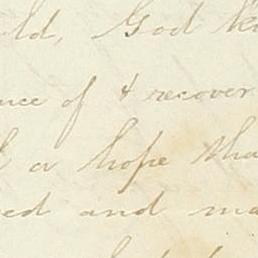 ld, God k
nce of & recover
a hope tha
ed and ma